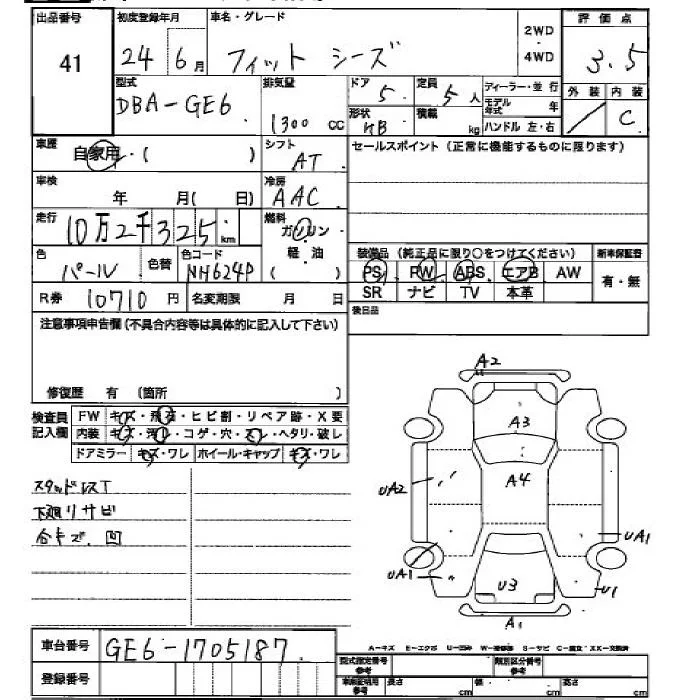 出品番号 初度登録年月 車名・グレード 2WD・4WD 評価点
41 24 6月 フィット シーズ 3.5
型式 排気量 ドア 定員 ディーラー・並行 外装 内装
DBA-GE6 1300 CC 5 5人 モデル年式 年 C
形状 HB 積載 kg ハンドル 左・右
車歴 自家用・( ) シフト AT セールスポイント (正常に機能するものに限ります)
車検 年 月( 日) 冷房 AAC
走行 10万2千325km 燃料 ガソリン
軽油
( )
色 パール 色替 色コード NH624P 装備品 (純正品に限り○をつけてください) 新車保証書
PS PW ABS エアB AW 有・無
R券 10710円 名変期限 月 日 SR ナビ TV 本革
注意事項申告欄 (不具合内容等は具体的に記入して下さい) 後日品
修復歴 有 (箇所 )
検査員記入欄 FW キズ・飛石・ヒビ割・リペア跡・X要
内装 キズ・汚れ・コゲ・穴・スレ・ヘタリ・破レ
ドアミラー キズ・ワレ ホイール・キャップ キズ・ワレ
スタッドレスT
下廻リサビ
合キズ.凹
A2
A3
A4
UA2
UA1
UA1
U3
U1
A1
車台番号 GE6-1705187
登録番号
A-キズ E-エクボ U-凹み W-補修跡 S-サビ C-腐食 XX-交換済
型式指定番号 参考 類別区分番号 参考
車庫証明用 参考 長さ cm 幅 cm 高さ cm